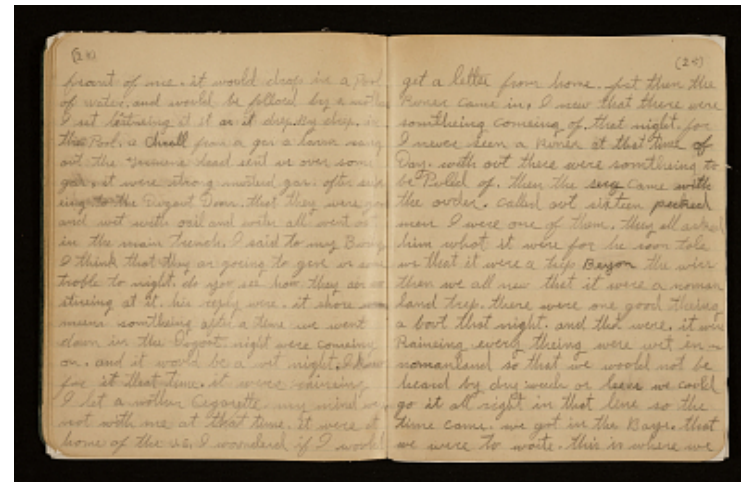 (24)
front of me. it would drop in a Pool
of water. and would be follod by a nother
I set listning it as it drop. By drop. in
the Pool. a chrall from a gas a larm rang
out the germans dead sent us over some
gas. it were strong mustard gas. after
to the Dugout Door. that they were
and wet with oail and water all went out
in the main trench. I said to my Buny
I think that they ar going to give us som
troble to night. do you see how they air
stireing at it. his reply were. it shore
means somtheing after a time we went
down in the Dogout night were comeing
on. and it would be a wet night. I know
for it that time. it were raineing
I let a nother Cegarette. my mind
not with me at that time. it were at
home of the us. I woondered if I would
(25)
get a letter from home. jut then the
Runer came in. I new that there were
somtheing comeing of. that night. for
I never seen a Runer at that time of
Day. with out there were somtheing to
be Pulled of. then the came with
the order. called out sixteen
men I were one of them. they all asked
him what it were for he soon tole
us that it were a trip Beyon the wire
then we all new that it were a noman
land trip. there were one good theing
a bout that night. and that were. it were
Raineing every theing were wet in
nomanland so that we woold not be
heard by dry weeds or leaves we could
go it all right in that line so the
time came. we got in the Bays. that
we were to waite. this is where we